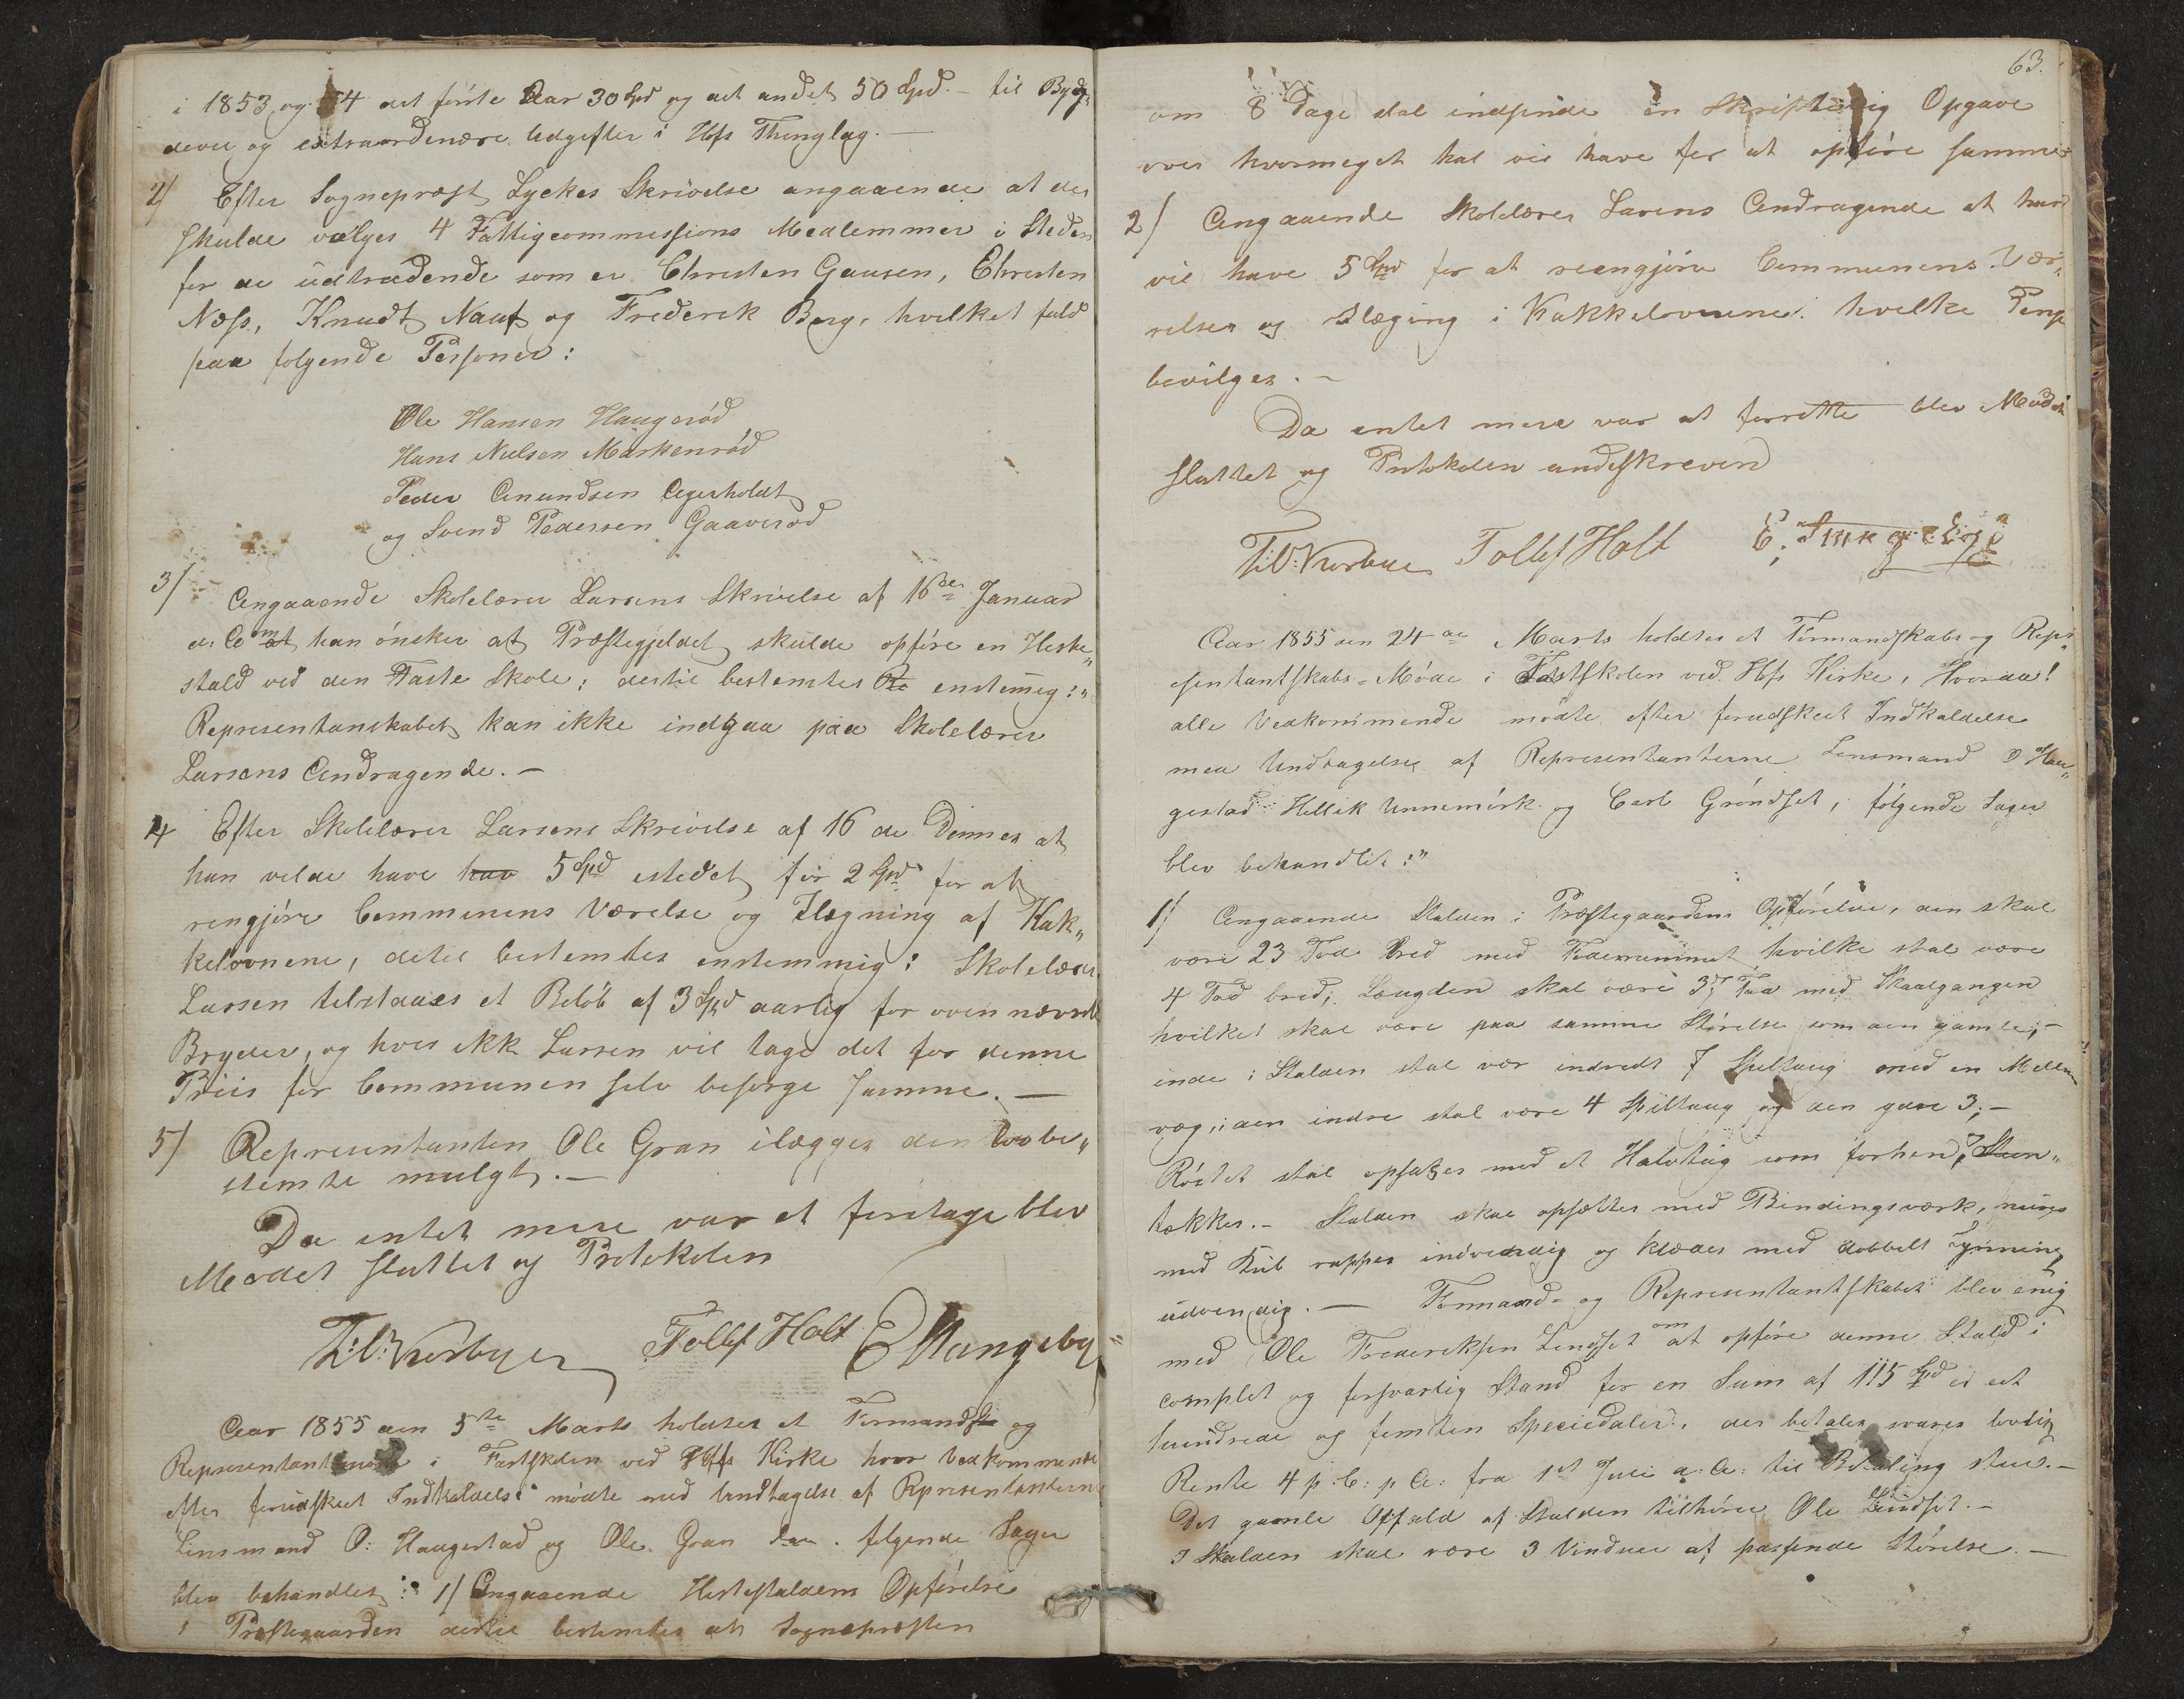 i 1853 og 54 det förste Aar 30 Spd og det andet 50 Spd. – til Bygg„
dever og extraordenære Udgifter i Hofs Thinglag. —
2/ Efter Sognepræst Lyckes Skrivelse angaaende at der
skulde vælges 4 Fattigcommissions Medlemmer i Steden
for de udtrædende som er Christen Gausen, Christen
Næss, Knudt Nauf og Frederek Berg, hvilket fald
paa folgende Personer:
Ole Hansen Haugeröd
Hans Nielsen Markenröd
Peder Amundsen Agerholdt
og Svend Pedersen Gaaveröd
3/ Angaaende Skolelærer Larsens Skrivelse af 16de Januar
d. A. om at han önsker at Præstegjeldet skulde opföre en Heste„
stald ved den Faste Skole; dertil bestemtes enstemig:"
Representanskabet kan ikke indgaa paa Skolelærer
Larsens Andragende. –
4 Efter Skolelærer Larsens Skrivelse af 16 de Dennes at
han vilde have hav 5 Spd istedet för 2 Spd for at
rengjöre Communens Værelse og Ilægning af Kak„
kelovnene, dertil bestemtes enstemmig: Skolelærer
Larsen tilstaaes et Belöb af 3 Spd aarlig for ovennævnte
Bryderi, og hvis ikk Larsen vil tage det for denne
Priis for Communen selv besörge samme. —
5/ Representanten Ole Gran ilægges den lovbe„
stemte mulgt. —
Da intet mere var at foretage blev
Mødet sluttet og Protokolen
T. V. Kiørbye Tollef Holt E Stangeby
Aar 1855 den 5te Marts holdtes et Formandsk og
Representantmöde i Fastskolen ved Hofs Kirke hvor Vedkommende
efter forudskeet Indkaldelse mödte med Undtagelse af Representanterne
Linsmand O: Haugestad og Ole Gran . folgende Sager
blev behandlet: 1/ Angaaende Hestestaldens Opförelse
i Præstegaarden dertil bestemtes at Sognepræsten
63.
om 8 Dage skal indsende en Skriftelig Opgave
over hvormeget hal vil have for at opföre samme
2/ Angaaende Skolelærer Larens Andragende at han
vil have 5 Spd for at reengjöre Communens Vær„
relser og Ilæging i Kakkelovnene. hvilke Penge
bevilges. –
Da entet mere var at forrette blev Mödet
sluttet og Protokolen underskreven
T. V. Kiørbye Tollef Holt E. Stangeby
Aar 1855 den 24de Marts holdtes et Formandskabs og Repr„
esentantskabs-Möde i Fastskolen ved Hofs Kirke, Hvorda!
alle Vedkommende mödte efter forudskeet Indkaldelse
med Undtagelse af Representanterne Lensmand O Hau„
gestad Hellik Unnemörk og Carl Gröndset, fölgende Sager
blev behandlet:"
1/ Angaaende Stalden i Præstegaardens Opförelse, den skal
være 23 Fod bred med Foderrummet hvilke skal være
4 Fod bred; Længden skal være 37 Fod med Skaalgangen
hvilket skal være paa samme Störelse som den gamle; –
inde i Stalden skal vær indredt 7 Spiltaug med en Mellem
væg, i den indre skal være 4 Spiltaug og den ydre 3; –
Röstet skal opsættes med et Halvtag som forhen, Steen„
tækkes. – Stalden skal opsættes med Bindingsværk, mures
med Kub rappes indvendig og klædes med dobbelt Tynning
udvendig. — Formand- og Representantskabet blev enig
med Ole Frederiksen Lindset om at opföre denne Stald i
complet og forsvarlig Stand for en Sum af 115 Spd et
hundrede og femten Speciedaler, der betales svares lovlig
Rente 4 p. C: p A: fra 1st Juli a. A: til Betaling skeer. –
Det gamle Affald af Stalden tilhörer Ole Lindset. –
I Stalden skal være 3 Vinduer af passende Störelse. —